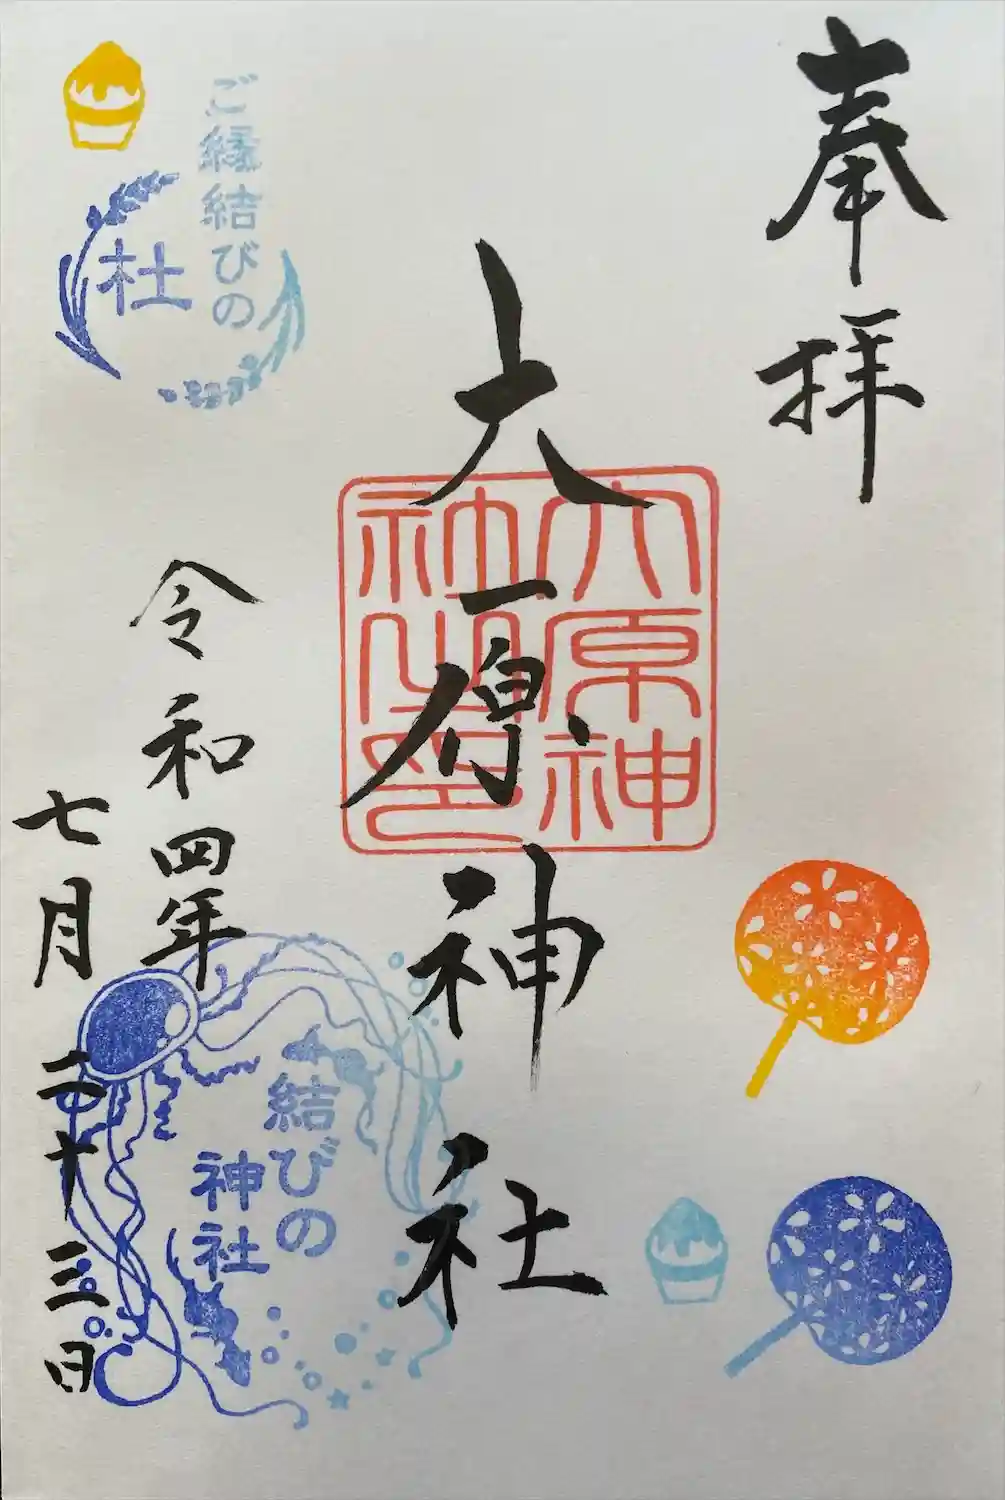 奉拝
大原神社
大原神
社之印
令和四年
七月二十三日
ご縁結びの
杜
結びの
神社